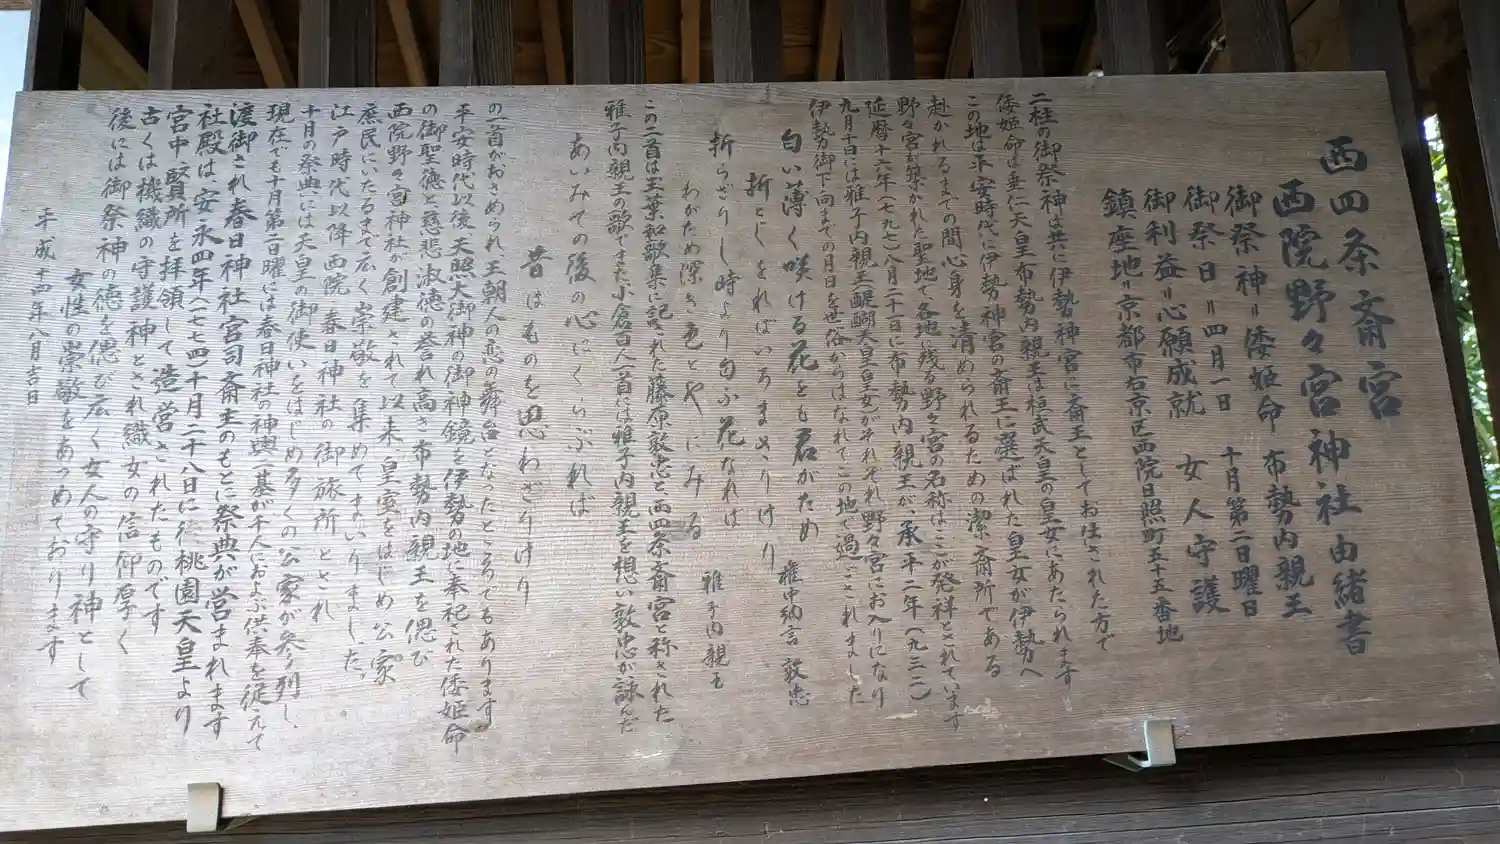 西四条斎宮
西院野々宮神社由緒書
御祭神＝倭姫命 布勢内親王
御祭日＝四月一日 十月第二日曜日
御利益＝心願成就 女人守護
鎮座地＝京都市右京区西院日照町五十五番地
二柱の御祭神は共に伊勢神宮に斎王としておはされた方で
倭姫命は垂仁天皇布勢内親王は桓武天皇の皇女にあたられます
この地は平安時代に伊勢神宮の斎王に選ばれた皇女が伊勢へ
赴かれるまでの間心身を清められるための潔斎所である
野々宮が築かれた聖地で各地に残る野々宮の名称はここが発祥とされています
延暦十六年（七九七）八月二十一日に布勢内親王が、承平二年（九三二）
九月二十日には雅子内親王（醍醐天皇皇女）がそれぞれ野々宮にお入りになり
伊勢御下向までの月日を世俗からはなれてこの地で過ごされました
匂い薄く咲ける花をも君がため
折としをればいろまさりけり 権中納言 敦忠
折らざりし時より匂ふ花なれば
わがため深き色とやにみる 雅子内親王
この二首は玉葉和歌集に記された藤原敦忠と西四条斎宮と称された
雅子内親王の歌でまた小倉百人一首には雅子内親王を想い敦忠が詠んだ
あいみての後の心にくらぶれば
昔はものを思わざりけり
の一首がおさめられ王朝人の恋の舞台となったところでもあります
平安時代以後天照大御神の御神鏡を伊勢の地に奉祀された倭姫命
の御聖徳と慈悲淑徳の誉れ高き布勢内親王を偲び
西院野々宮神社が創建されて以来、皇室をはじめ公家
庶民にいたるまで広く崇敬を集めてまいりました
江戸時代以降西院春日神社の御旅所とされ
十月の祭典には天皇の御使いをはじめ多くの公家が参列し、
現在でも十月第二日曜には春日神社の神輿二基が千人におよぶ供奉を従えて
渡御され春日神社宮司斎主のもとに祭典が営まれます
社殿は安永四年（一七七四）十月二十八日に後桃園天皇より
宮中賢所を拝領して造営されたものです
古くは機織の守護神とされ織女の信仰厚く
後には御祭神の徳を偲び広く女人の守り神として
女性の崇敬をあつめております
平成十四年八月吉日